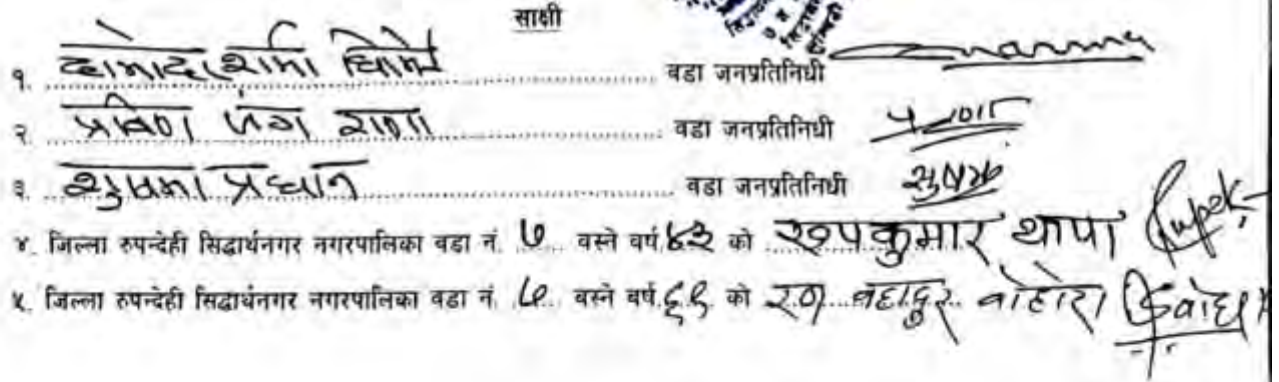 साक्षी
१. दामोदर शर्मा घिमिरे वडा जनप्रतिनिधी
२. प्रविण जंग राणा वडा जनप्रतिनिधी
३. सुषमा प्रधान वडा जनप्रतिनिधी सुषमा
४. जिल्ला रुपन्देही सिद्धार्थनगर नगरपालिका वडा नं. ७ वस्ने वर्ष ४३ को रुपकुमार थापा
५. जिल्ला रुपन्देही सिद्धार्थनगर नगरपालिका वडा नं. ७ वस्ने वर्ष ६९ को रण बहादुर बोहोरा